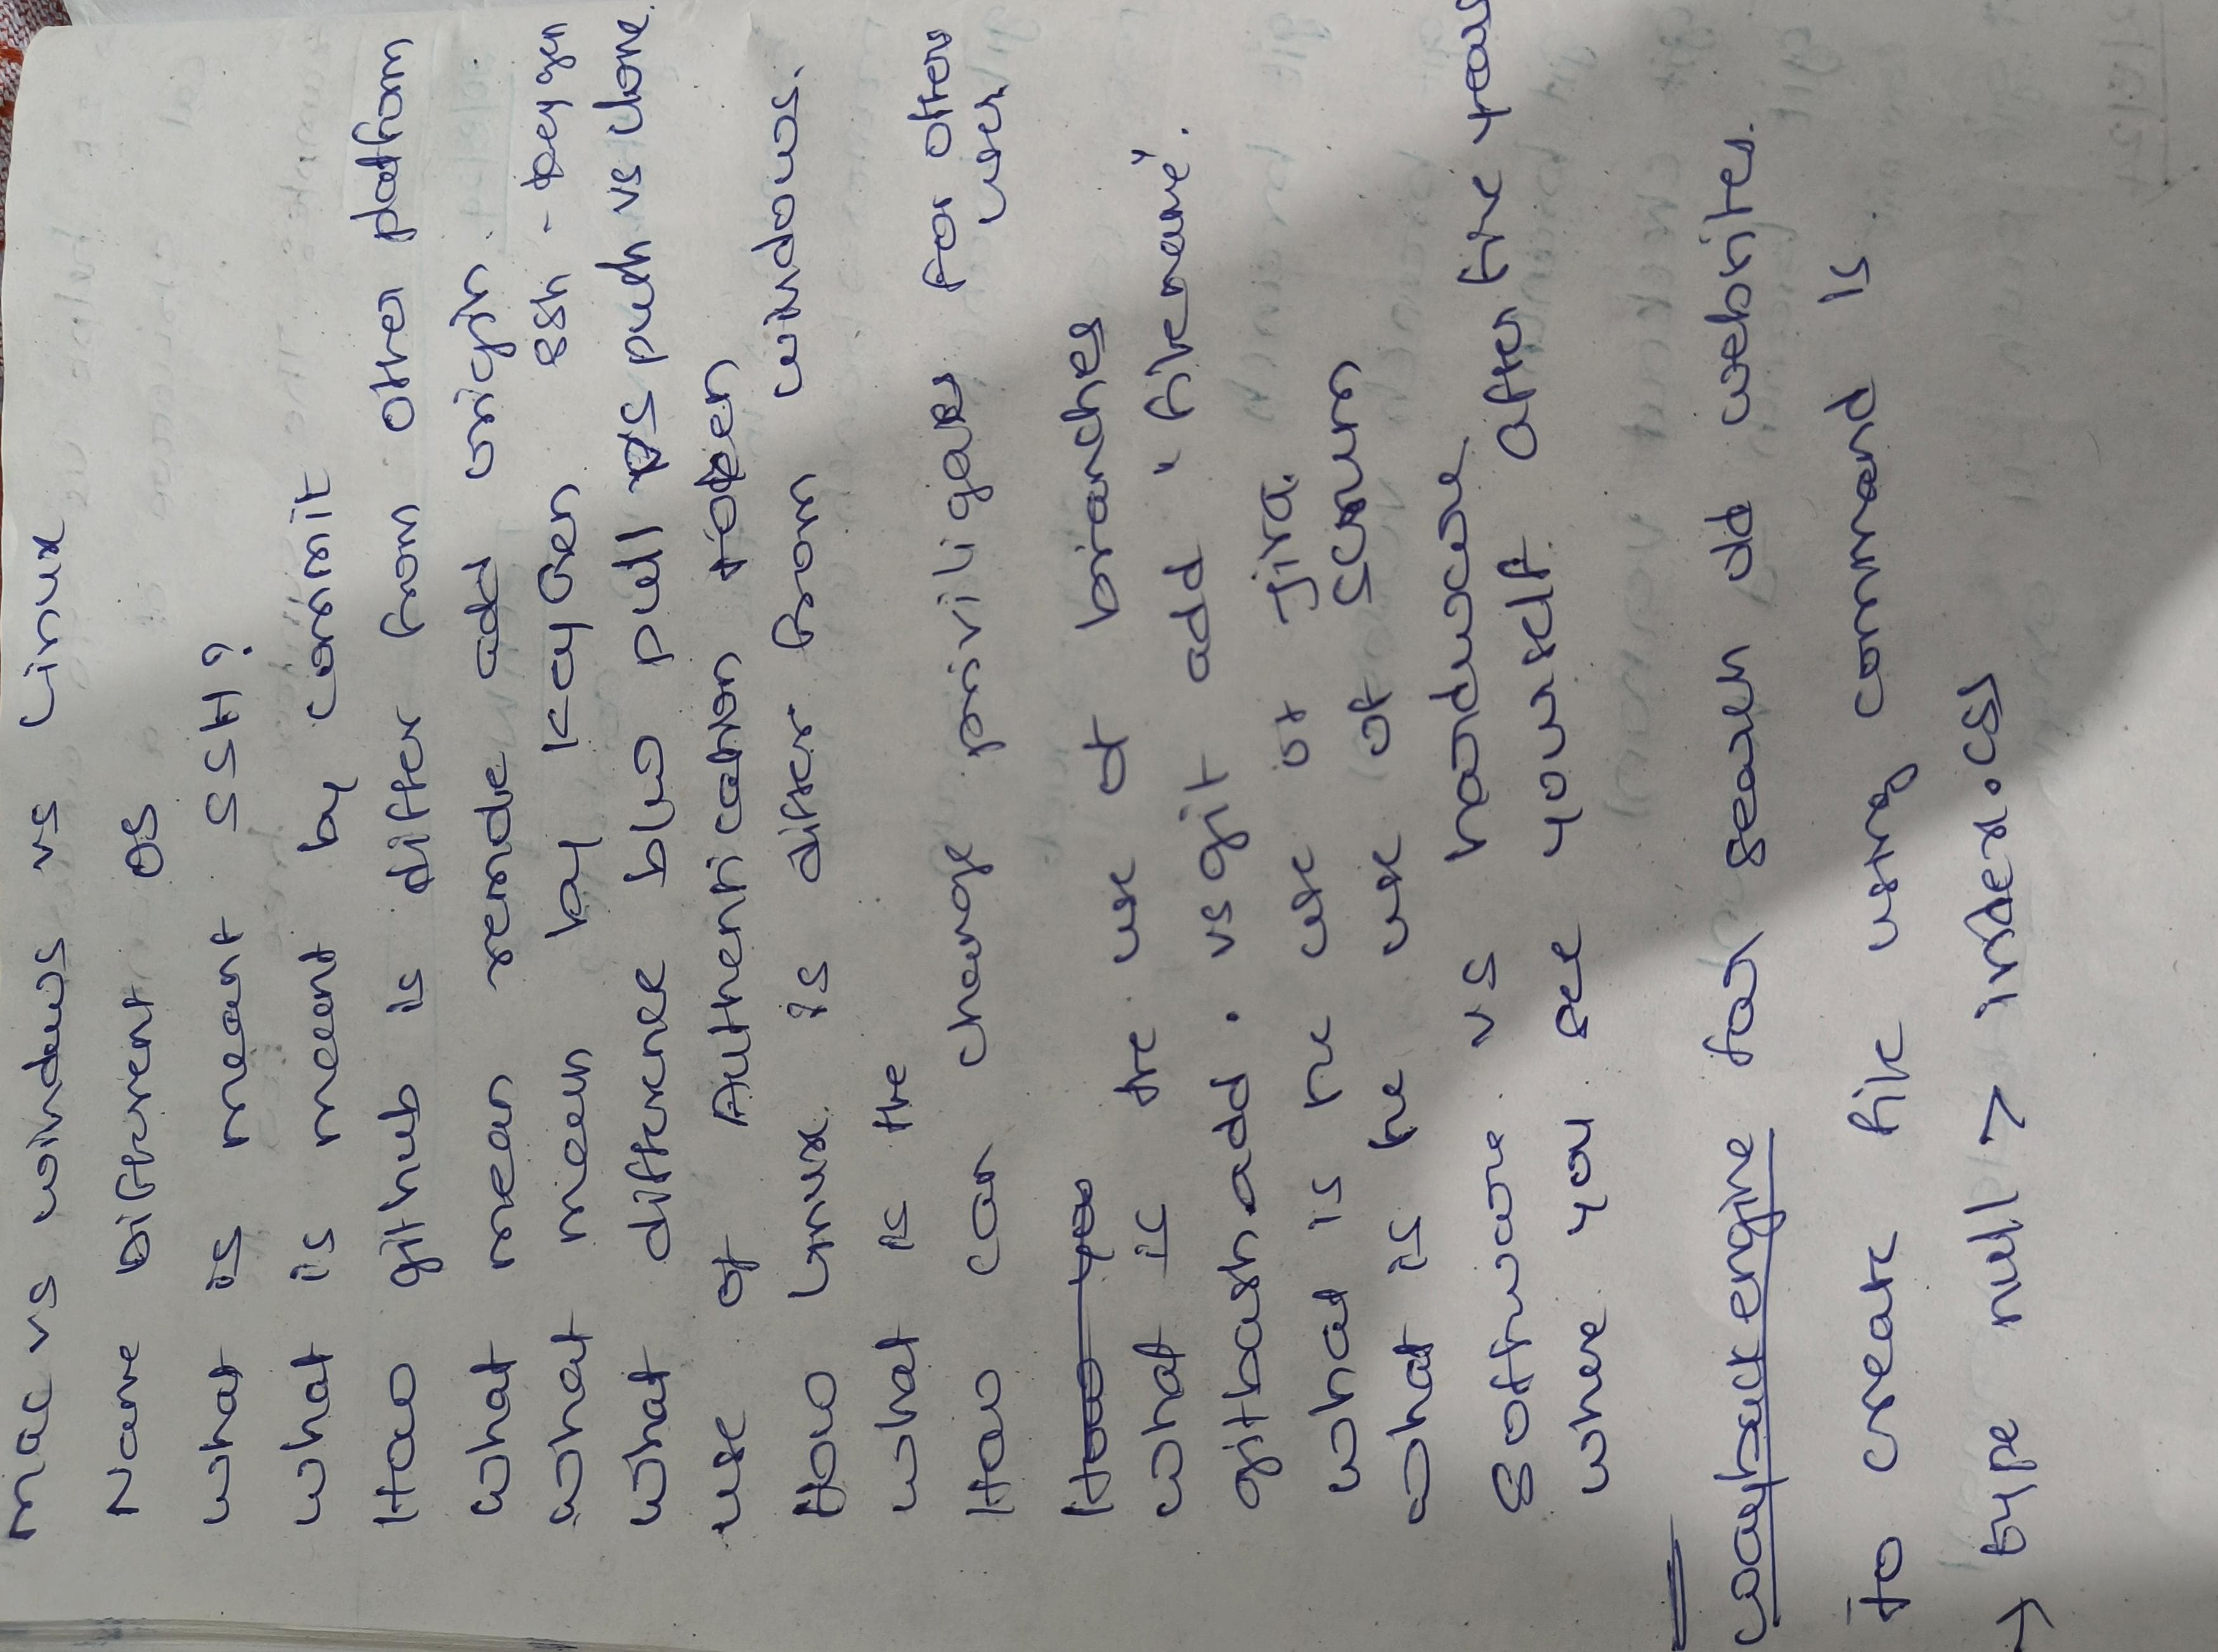 mac vs windows vs Linux
Name Different OS
what is meant SSH?
what is meant by commit
How github is differ from other platfrom
what mean remode add origin
what mean by KayGen ssh-keygen
what difference b/w pull vs push vs clone.
use of Authentication token
How Linux is differ from windows.
what is the
How can change priviligaes for other user
How you
what is the use of branches
gitbash add . vs git add "filename".
what is he use of Jira.
what is he use of scrum
Software vs hardware
where you see yourself after five years
wayback engine for search old websites.
To create file using command is
→ type null > index.css